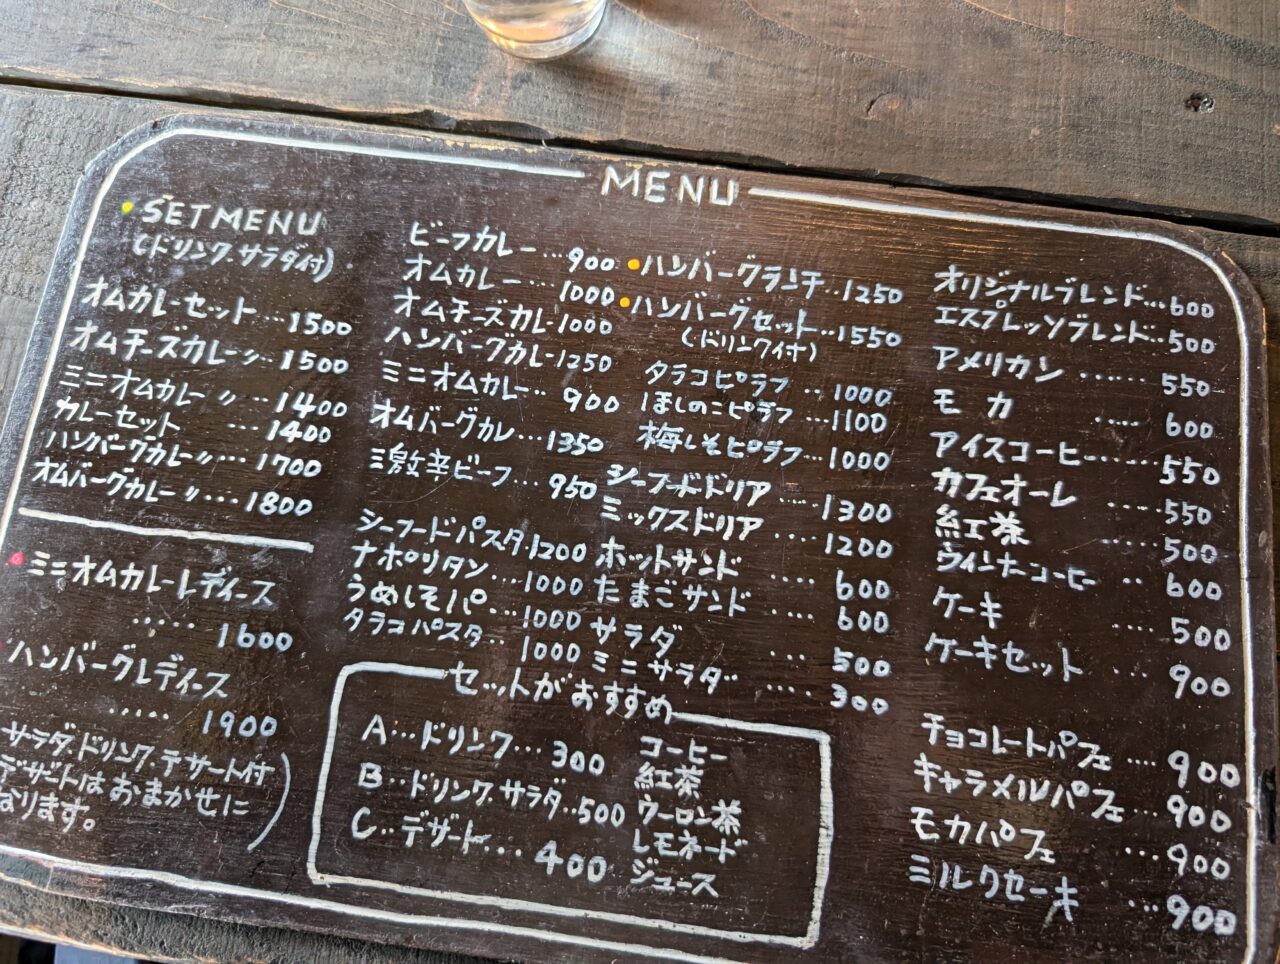 MENU
SETMENU
(ドリンク.サラダ付)
オムカレーセット…1500
オムチーズカレー〃…1500
ミニオムカレー〃…1400
カレーセット…1400
ハンバーグカレー〃…1700
オムバーグカレー〃…1800
ミニオムカレーレディース
…..1600
ハンバーグレディース
…..1900
サラダ.ドリンク.デザート付
デザートはおまかせに
なります。
ビーフカレー…900
オムカレー…1000
オムチーズカレー1000
ハンバーグカレー1250
ミニオムカレー…900
オムバーグカレ…1350
ミ激辛ビーフ…950
シーフードパスタ.1200
ナポリタン…1000
うめしそパ…1000
タラコパスタ…1000
ハンバーグランチ..1250
ハンバーグセット…1550
(ドリンク付)
タラコピラフ…1000
ほしのこピラフ…1100
梅しそピラフ…1000
シーフードドリア….1300
ミックスドリア….1200
ホットサンド….600
たまごサンド….600
サラダ…500
ミニサラダ….300
セットがおすすめ
A…ドリンク…300
B…ドリンク.サラダ..500
C…デザート…400
コーヒー
紅茶
ウーロン茶
レモネード
ジュース
オリジナルブレンド…600
エスプレッソブレンド..500
アメリカン……550
モカ…..600
アイスコーヒー……550
カフェオーレ….550
紅茶…..500
ウィンナーコーヒー..600
ケーキ….500
ケーキセット…900
チョコレートパフェ….900
キャラメルパフェ…900
モカパフェ…900
ミルクセーキ…900